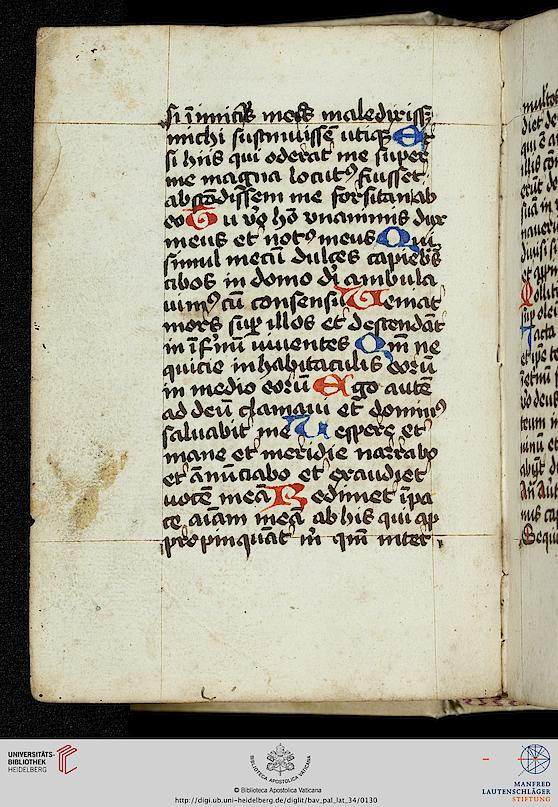 si inimicus meus maledixiss
michi sustinuissē utiqȝ Et
si hiis qui oderat me super
me magna locutꝰ fuisset
abscōdissem me forsitan ab
eo Tu vo hō vnanimis dux
meus et notꝰ meus Qui
simul mecū dulces capiebas
cibos in domo di ambula
uimꝰ cū consensu Ueniat
mors sup illos et descendāt
in īfnū uiuentes Qm ne
quicie in habitaculis eorū
in medio eorū Ego autē
ad deū clamaui et dominꝰ
saluabit me Uespere et
mane et meridie narrabo
et ānūciabo et exaudiet
uocē meā Redimet ī pa
ce aīam meā ab his qui ap
propinquāt m qm inter
UNIVERSITÄTS-
BIBLIOTHEK
HEIDELBERG
BIBLIOTECA APOSTOLICA VATICANA
© Biblioteca Apostolica Vaticana
http://digi.ub.uni-heidelberg.de/diglit/bav_pal_lat_34/0130
MANFRED
LAUTENSCHLÄGER
STIFTUNG